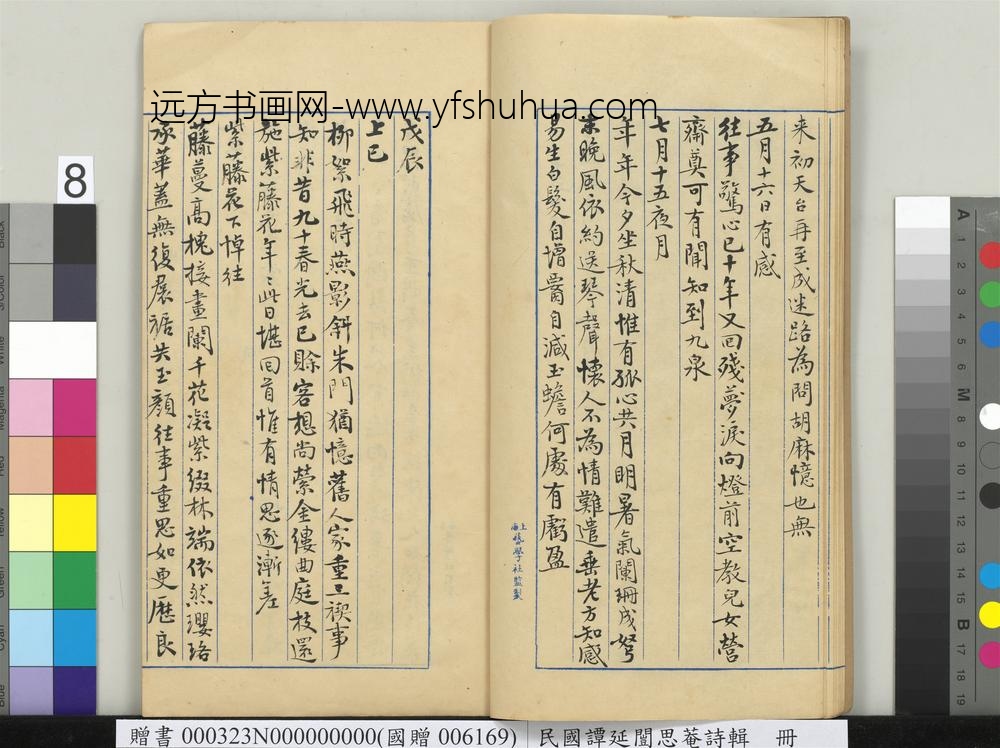 远方书画网-www.yfshuhua.com
来初天台再至成迷路為問胡麻憶也無
五月十六日有感
往事驚心已十年又回殘夢淚向燈前空教兒女營
齋奠可有聞知到九泉
七月十五夜月
年年今夕坐秋清惟有孤心共月明暑氣闌珊成弩
末晚風依約送琴聲懷人不為情難遣垂老方知感
易生白髮自增霤自減玉蟾何處有虧盈
上海藝學社監製
戊辰
上巳
柳絮飛時燕影斜朱門猶憶舊人家重三禊事
知非昔九十春光去已賒客想尚縈金縷曲庭枝還
施紫藤花年〻此日堪回首惟有情思逐漸差
紫藤花下悼往
藤蔓高槐接畫闌千花凝紫綴林端依然瓔珞
承華蓋無復展裾共玉顏往事重思如更歷良
8
贈書 000323N000000000(國贈 006169)
民國譚延闓思菴詩輯 冊
Black
3/Color
White
Magenta
Red
Yellow
Green
Cyan
Blue
A 1 2 3 4 5 6 M 8 9 10 11 12 13 14 15 B 17 18 19